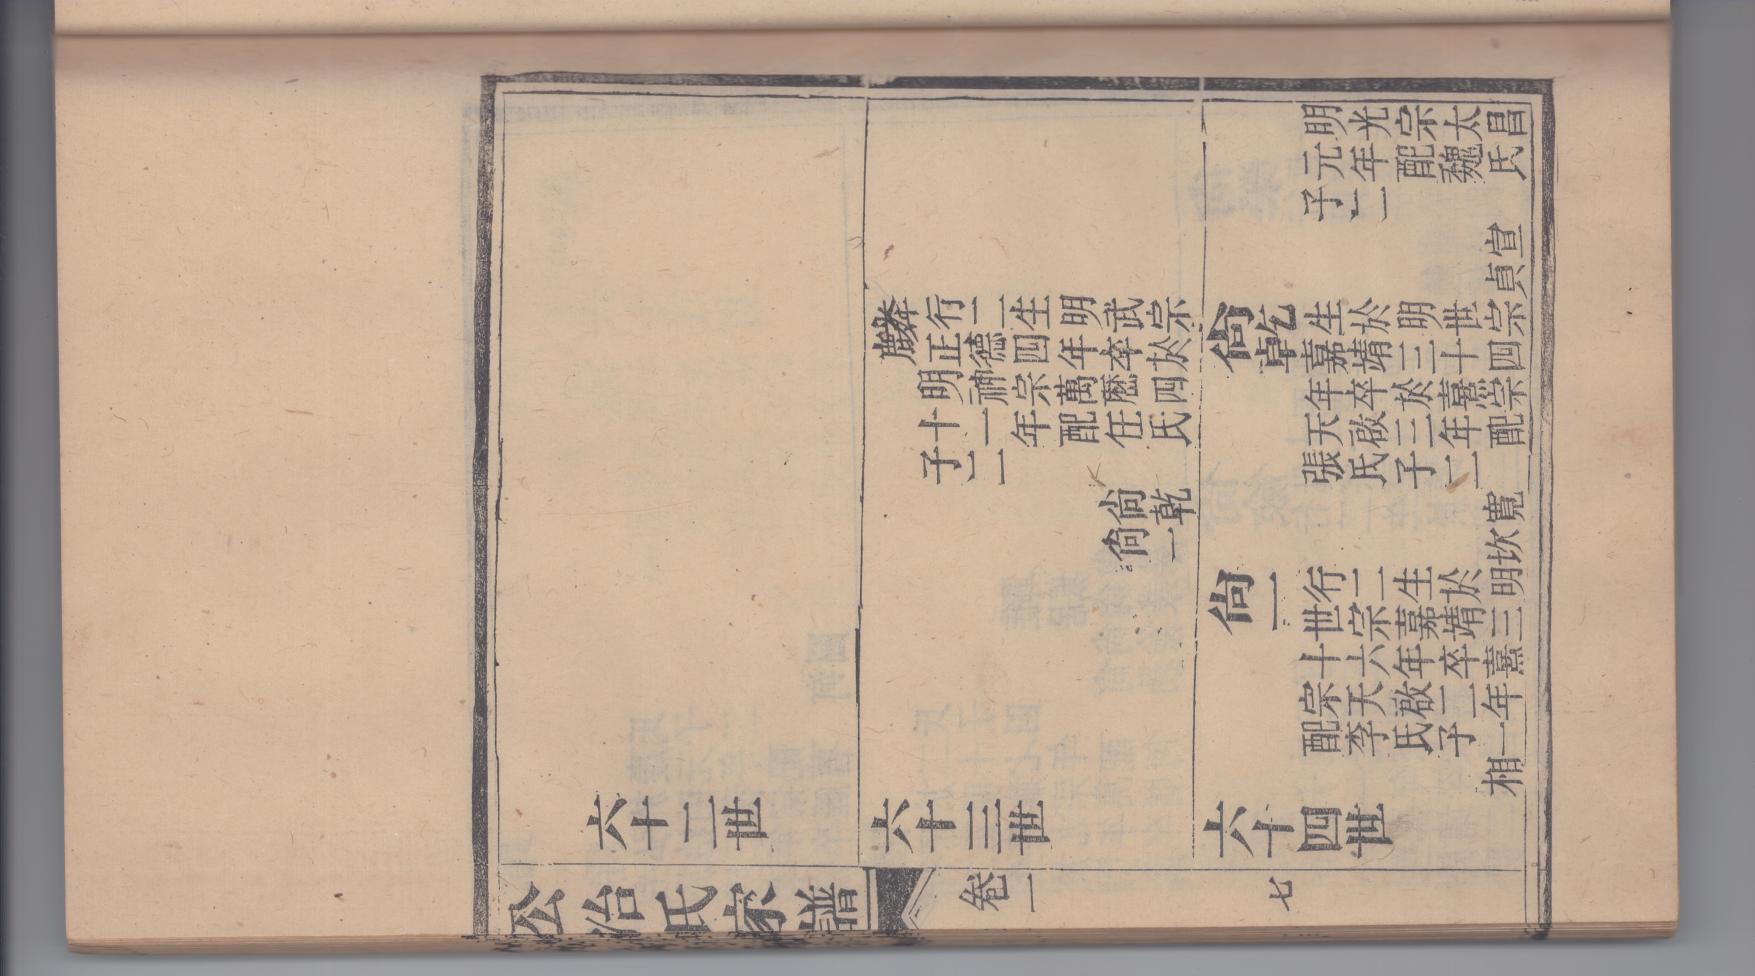 明光宗太昌
元年配魏氏
子一
宣
貞
麟
行二生明武宗
正德四年卒於
明神宗萬曆四
十二年配任氏
子二
尚乾
尚一
尚乾
生於明世宗
嘉靖三十四
年卒於熹宗
天啟三年配
張氏子二
寬
坎
尚一
行二生於明
世宗嘉靖三
十六年卒熹
宗天啟二年
配李氏子一
相
六十二世
六十三世
六十四世
公冶氏家譜
卷一
七